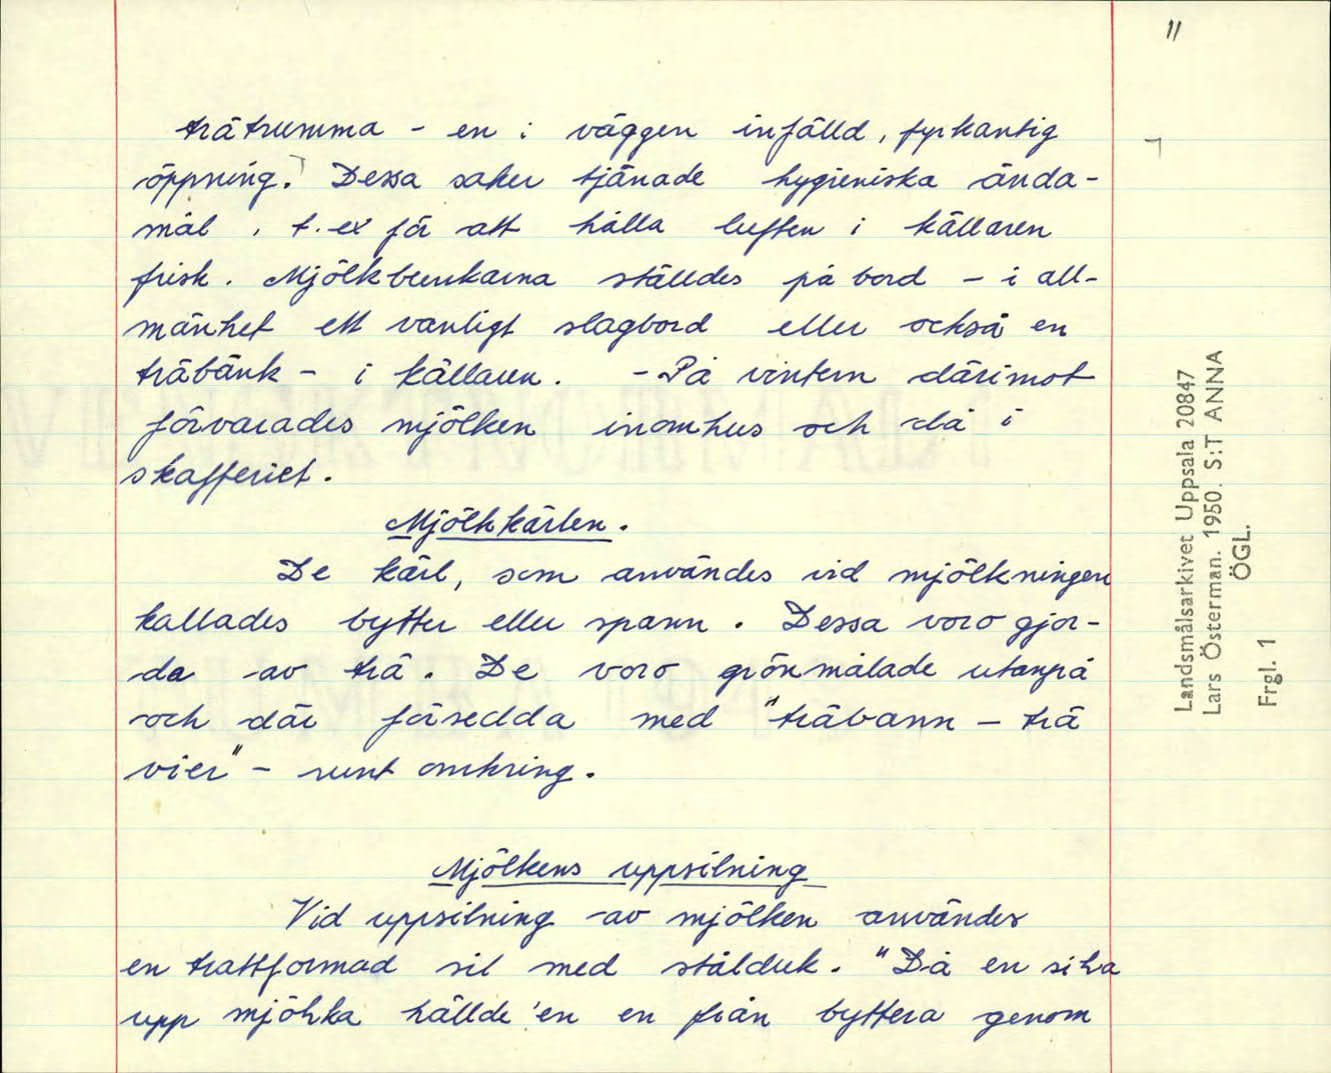 11
trätrumma - en i väggen infälld, fyrkantig
öppning. Dessa saker tjänade hygieniska ända-
mål, t.ex för att hålla luften i källaren
frisk. Mjölkbunkarna ställdes på bord - i all-
mänhet ett vanligt slagbord eller också en
träbänk - i källaren. - På vintern därimot
förvarades mjölken inomhus och då i
skafferiet.
Mjölkkärlen.
De kärl, som användes vid mjölkningen
kallades bytter eller spann. Dessa voro gjor-
da av trä. De voro grönmålade utanpå
och där försedda med "träbann - trä
vier" - runt omkring.
Mjölkens uppsilning
Vid uppsilning av mjölken användes
en trattformad sil med stålduk. "Då en silva
upp mjöhka hällde 'en en från byttera genom
Landsmålsarkivet Uppsala 20847
Lars Österman. 1950. S:T ANNA
ÖGL.
Frgl. 1